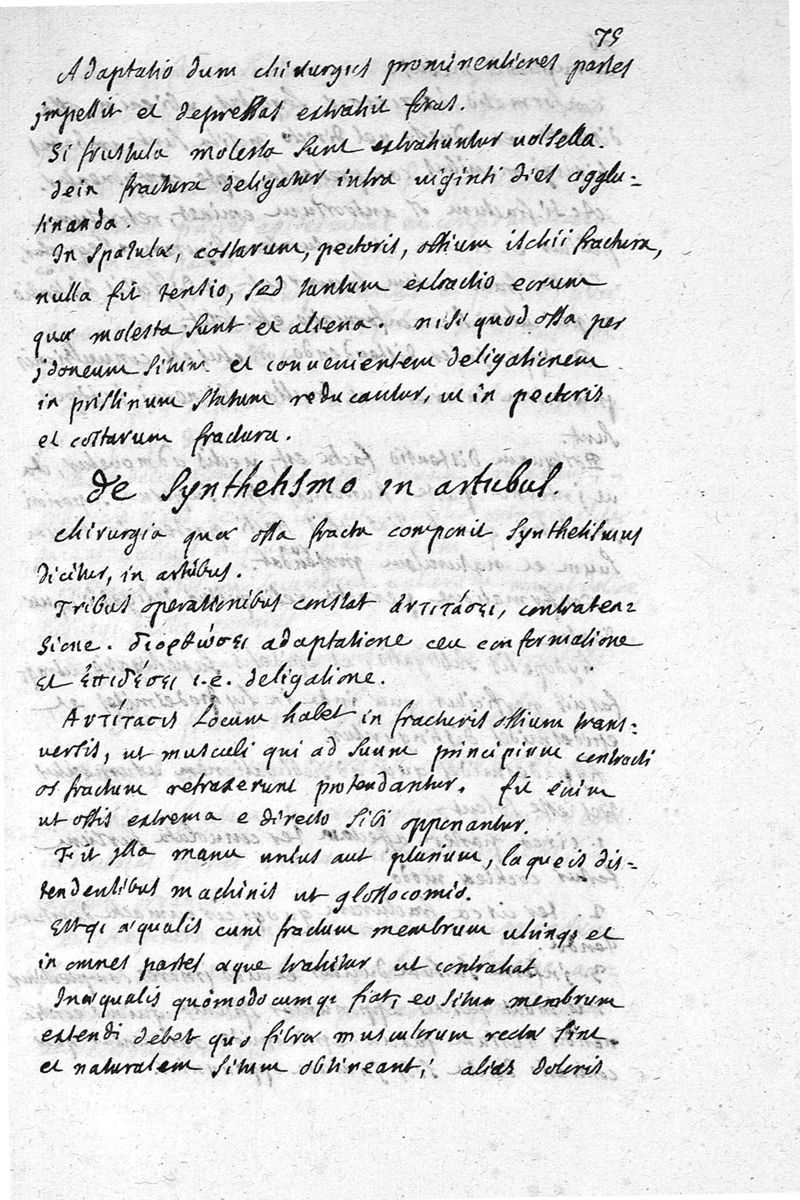 75
Adaptatio dum chirurgus prominentiores partes
jmpellit et depressas extrahit foras.
Si frustula molesta sunt extrahuntur volsella.
dein fractura deligatur intra viginti dies agglu-
tinanda.
In spatulæ, costarum, pectoris, ossium ischii fractura,
nulla fit tentio, sed tantum extractio eorum
quæ molesta sunt et aliena. nisi quod ossa per
jdoneum situm et convenientem deligationem
in pristinum statum reducantur, ut in pectoris
et costarum fractura.
de Synthetismo in artubus.
Chirurgia quæ ossa fracta componit Synthetismus
dicitur, in artubus.
Tribus operationibus constat ἀντιτάσει, contraten-
sione. διορθώσει adaptatione ceu conformatione
et ἐπιδέσει i.e. deligatione.
Αντίτασις Locum habet in fracturis ossium trans-
versis, ut musculi qui ad suum principium contracti
os fractum retraxerunt protendantur. fit enim
ut ossis extrema e directo sibi opponantur.
Fit jlla manu unius aut plurium, laqueis dis-
tendentibus machinis ut glossocomio.
Estq; æqualis cum fractum membrum utrinq; et
in omnes partes æque trahitur ut contrahat
Inæqualis quomodocumq; fiat, eo situ membrum
extendi debet quo fibræ musculorum rectæ sint.
et naturalem situm obtineant; alias doloris